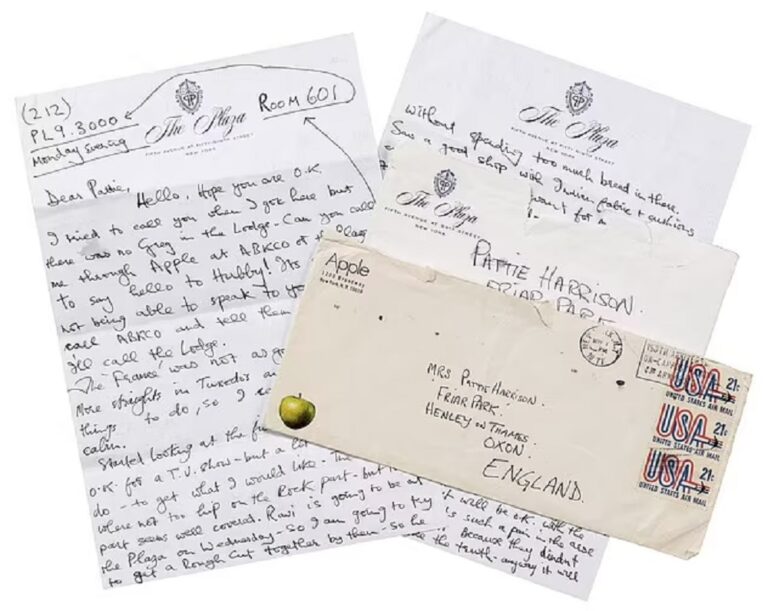 (212)
PL9.3000
Monday evening
Room 601
The Plaza
FIFTH AVENUE AT FIFTY-NINTH STREET
NEW YORK
Dear Pattie,
Hello, Hope you are O.K.
I tried to call you when I got here but
there was no Greg in the Lodge - Can you call
me through Apple at ABKCO or the Plaza
to say hello to Hubby! Its
not being able to speak to yo
call ABKCO and tell them
I'll call the Lodge.
The France, was not as go
More straights in Tuxedos an
things to do, so I
calm.
Started looking at the
O.K. for a T.V. show - but a lot
do - to get what I would like - the
where not too hip on the Rock part - but
part seems well covered. Ravi is going to be at
the Plaza on Wednesday - So I am going to try
to get a Rough Cut together by then - so he
The Plaza
FIFTH AVENUE AT FIFTY-NINTH STREET
NEW YORK
without spending too much bread in there.
Saw a good shop with Indian fabric + cushions
want for a
it will be O.K. with the
is such a pain in the arse
because they didn't
the truth - anyway it will
The Plaza
FIFTH AVENUE AT 59TH STREET
NEW YORK
PATTIE HARRISON.
FRIAR PARK
Apple
New York, N.Y.
MRS PATTIE HARRISON.
FRIAR PARK.
HENLEY ON THAMES
OXON.
ENGLAND.
USA 21c
UNITED STATES AIR MAIL
USA 21c
UNITED STATES AIR MAIL
USA 21c
UNITED STATES AIR MAIL